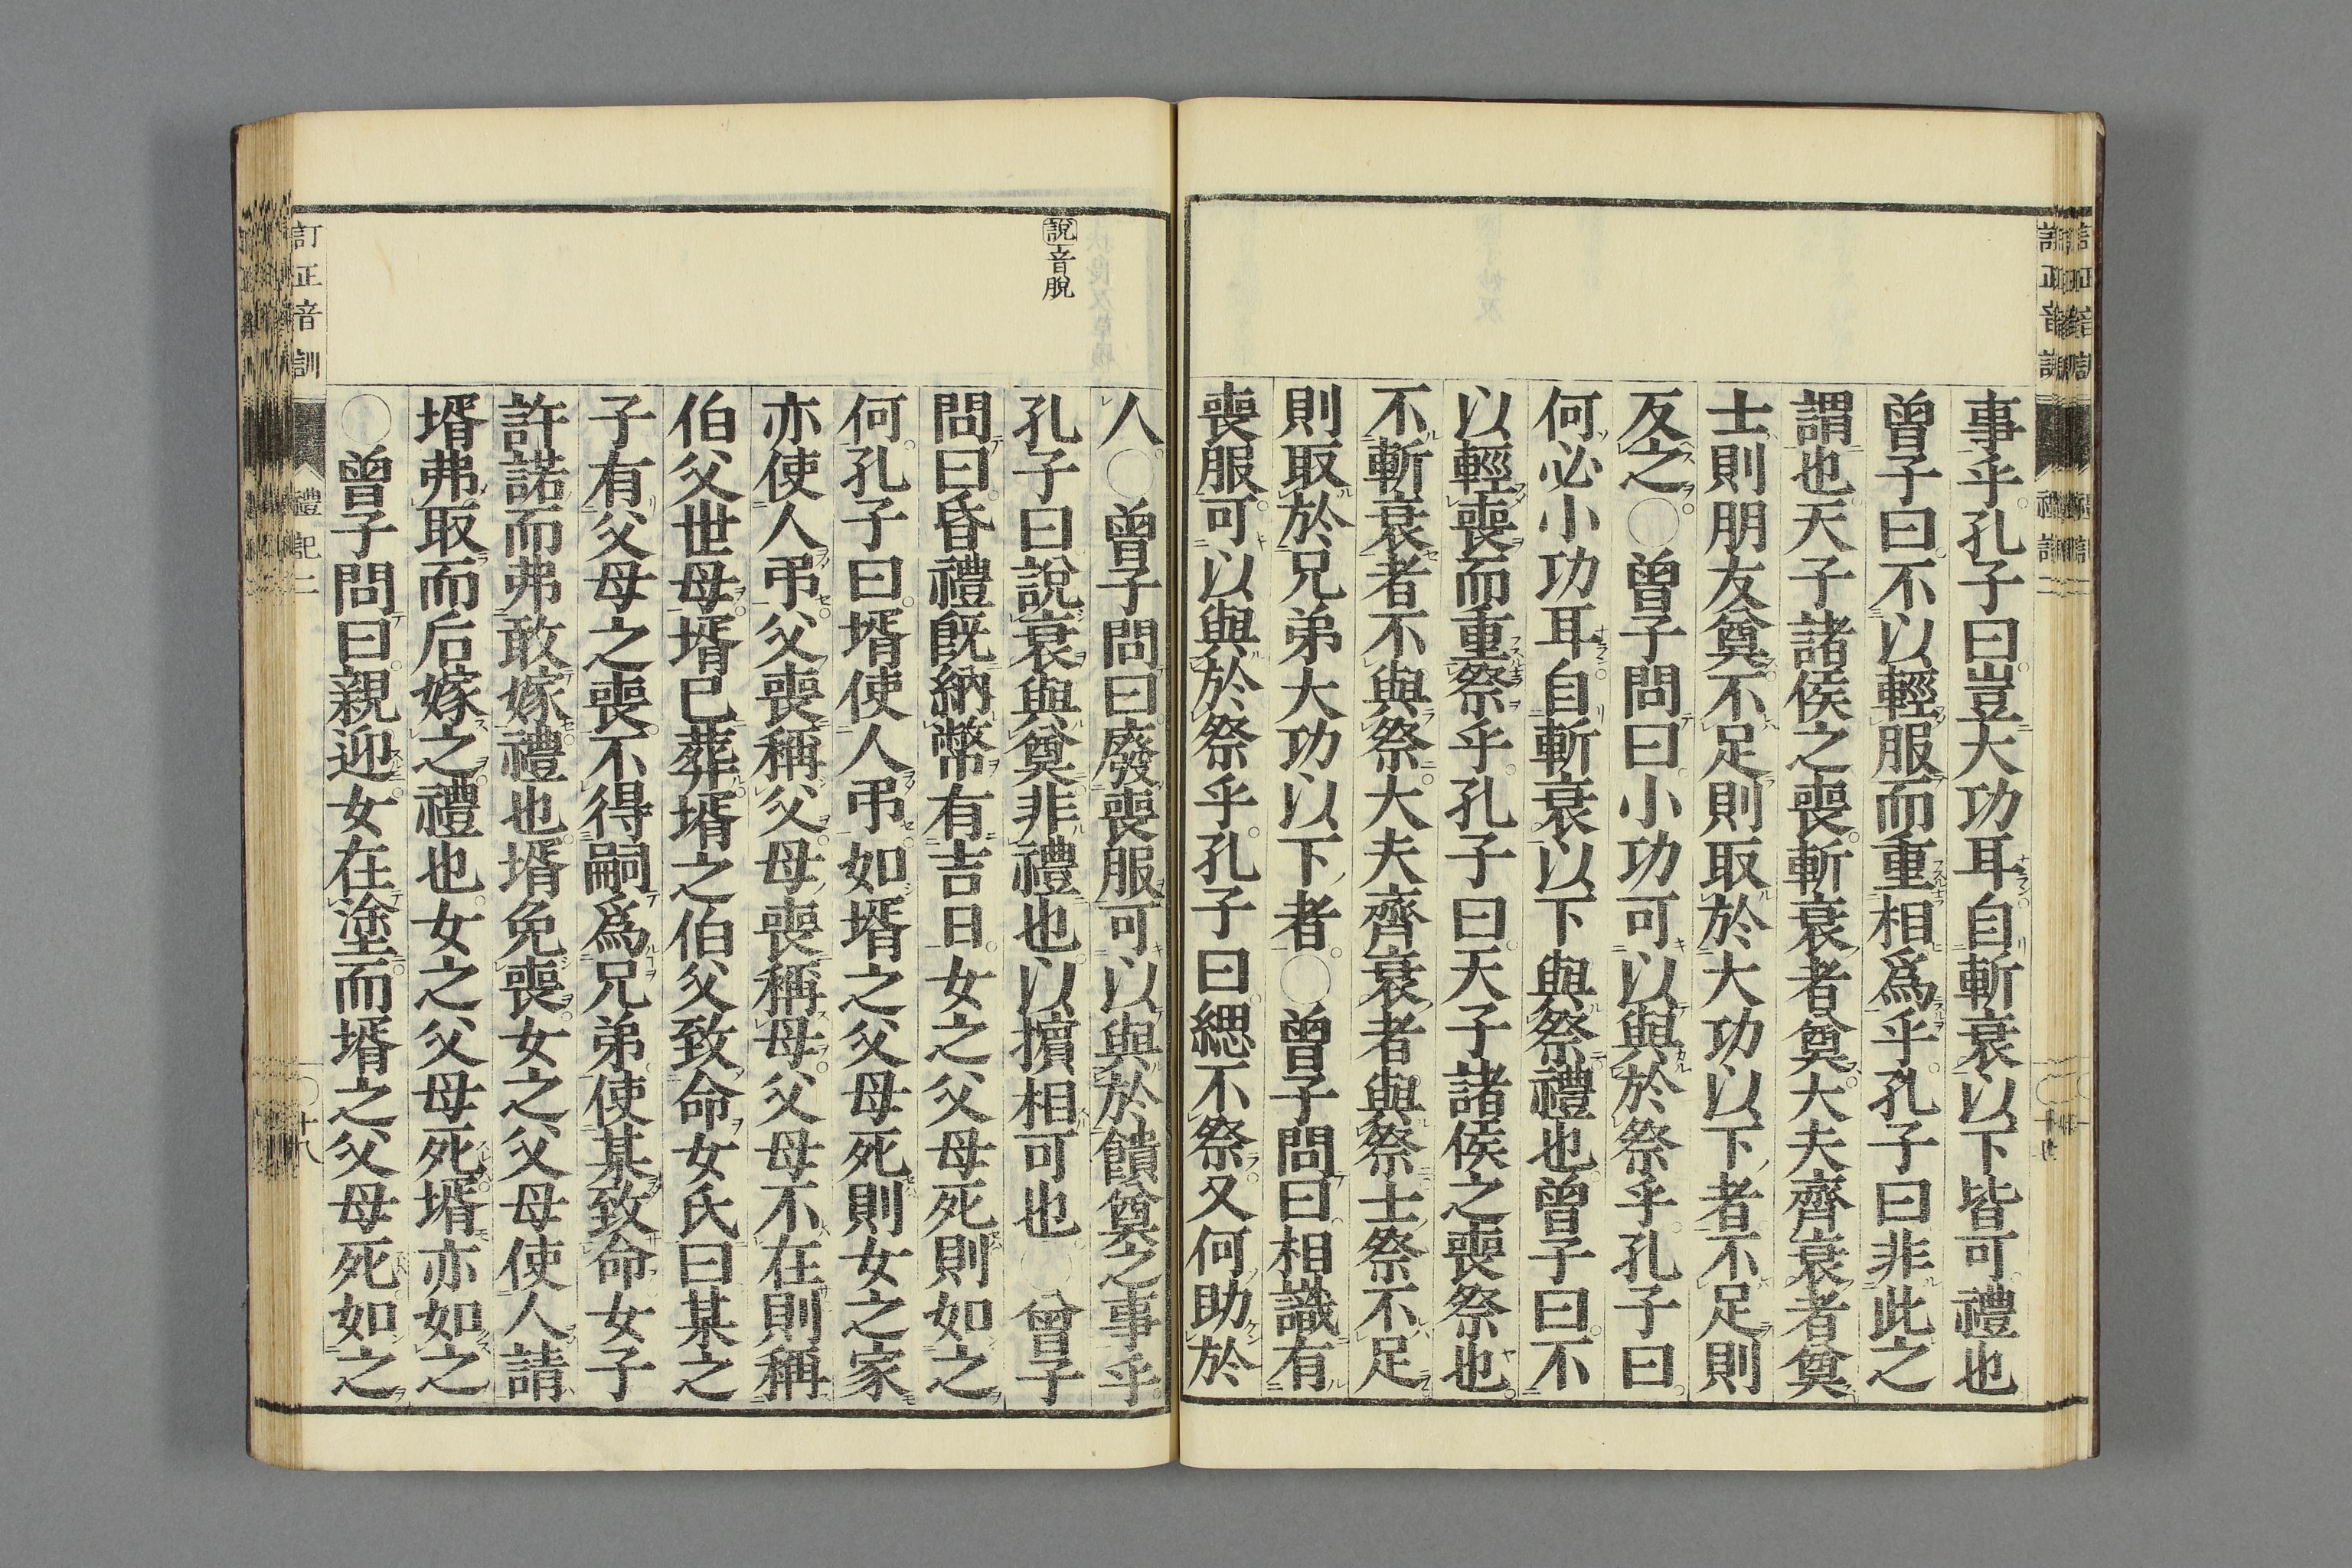 事乎孔子曰豈大功耳自斬衰以下皆可禮也
曾子曰不以輕服而重相爲乎孔子曰非此之
謂也天子諸侯之喪斬衰者奠大夫齊衰者奠
士則朋友奠不足則取於大功以下者不足則
反之○曾子問曰小功可以與於祭乎孔子曰
何必小功耳自斬衰以下與祭禮也曾子曰不
以輕喪而重祭乎孔子曰天子諸侯之喪祭也
不斬衰者不與祭大夫齊衰者與祭士祭不足
則取於兄弟大功以下者○曾子問曰相識有
喪服可以與於祭乎孔子曰緦不祭又何助於
說音脫
人○曾子問曰廢喪服可以與於饋奠之事乎
孔子曰說衰與奠非禮也以擯相可也○曾子
問曰昏禮既納幣有吉日女之父母死則如之
何孔子曰壻使人弔如壻之父母死則女之家
亦使人弔父喪稱父母喪稱母父母不在則稱
伯父世母壻已葬壻之伯父致命女氏曰某之
子有父母之喪不得嗣爲兄弟使某致命女子
許諾而弗敢嫁禮也壻免喪女之父母使人請
壻弗取而后嫁之禮也女之父母死壻亦如之
○曾子問曰親迎女在塗而壻之父母死如之
訂正音訓 禮記二 ○十八